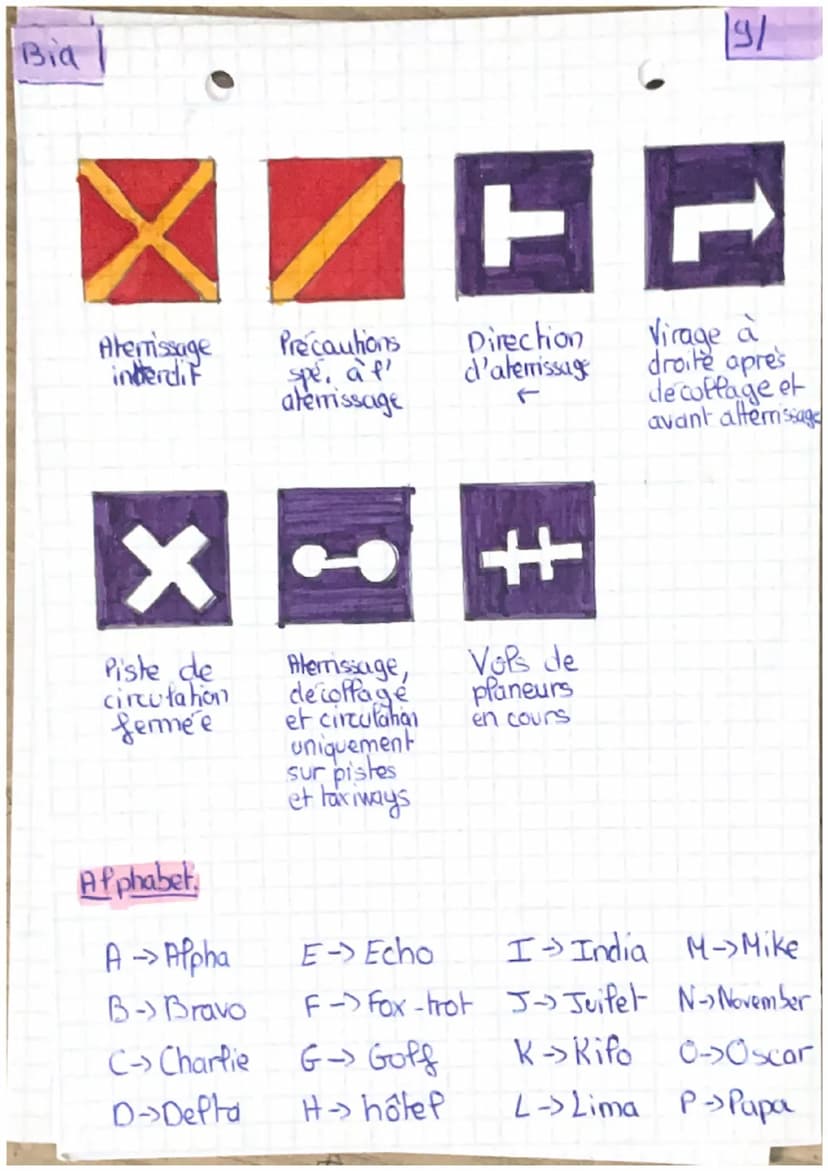 Bia
9/
Aterrissage
interdit
Précautions
spé. à l'
aterrissage
Direction
d'aterrissage
←
Virage à
droite après
décollage et
avant atterrissage
Piste de
circulation
fermée
Aterrissage,
décollage
et circulation
uniquement
sur pistes
et taxiways
Vols de
planeurs
en cours
Alphabet.
A → Alpha
E → Echo
I → India
M → Mike
B → Bravo
F → Fox-trot
J → Juilet
N → November
C → Charlie
G → Golf
K → Kilo
O → Oscar
D → Delta
H → hôtel
L → Lima
P → Papa